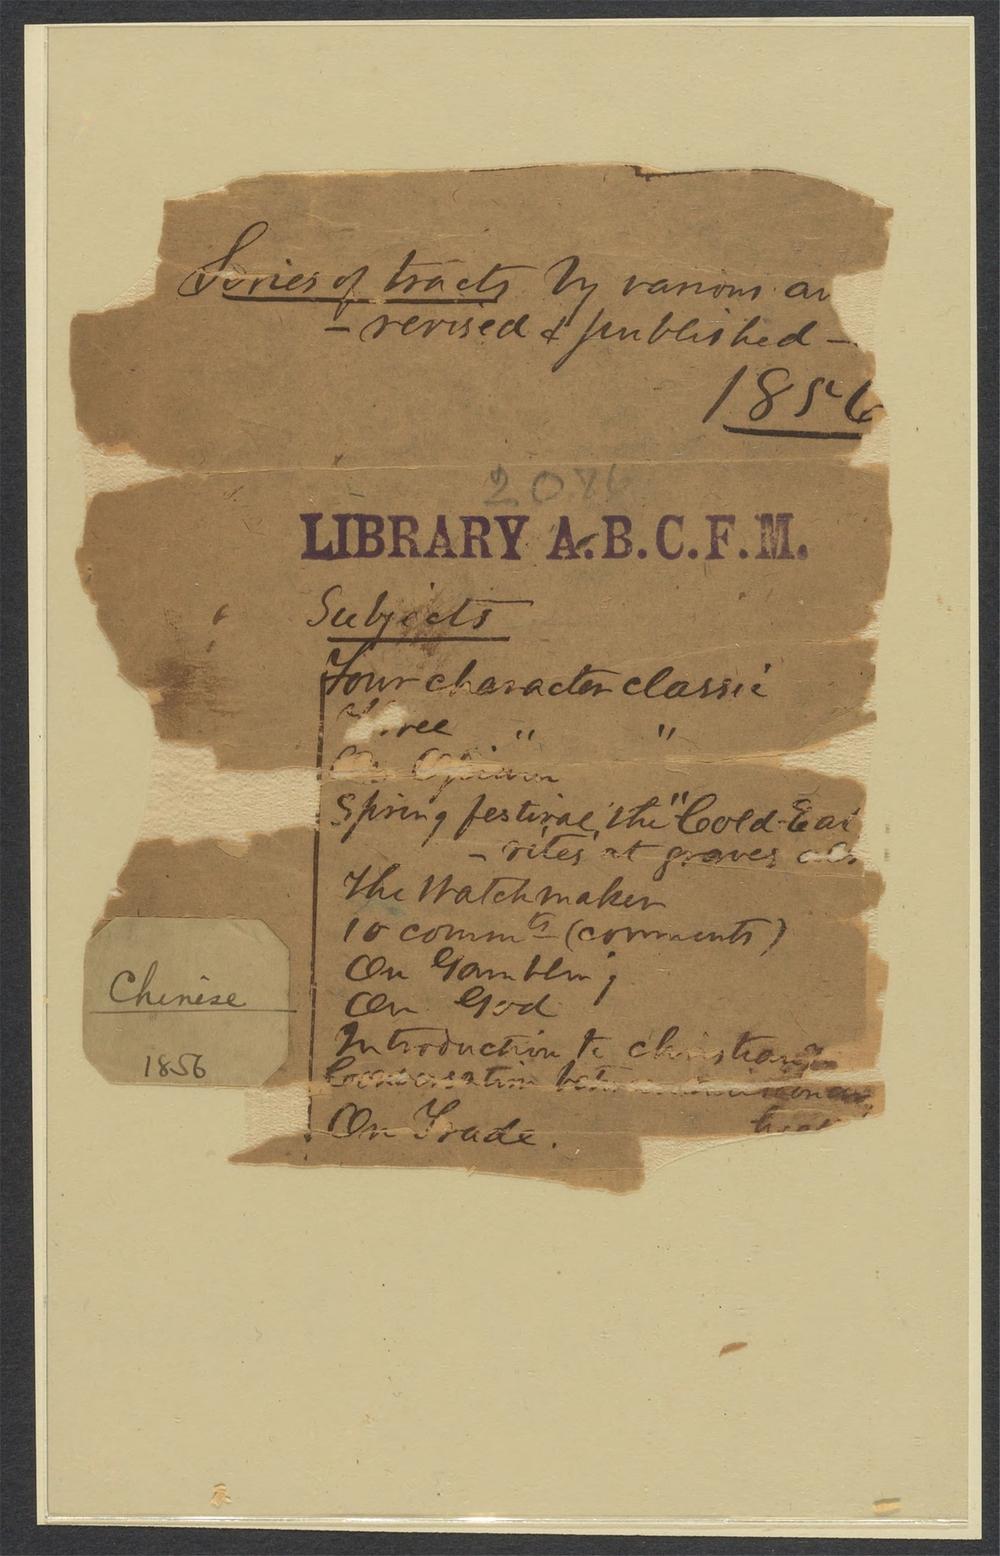 Series of tracts by various au
- revised & published -
1856
LIBRARY A.B.C.F.M.
Subjects
Four character classic
Three " "
On Opium
Spring festival, the "Cold Eat
- rites at graves
The Watchmaker
10 commts (comments)
On Gambling
On God
Introduction to christian
Conversation between
On Trade.
Chinese
1856